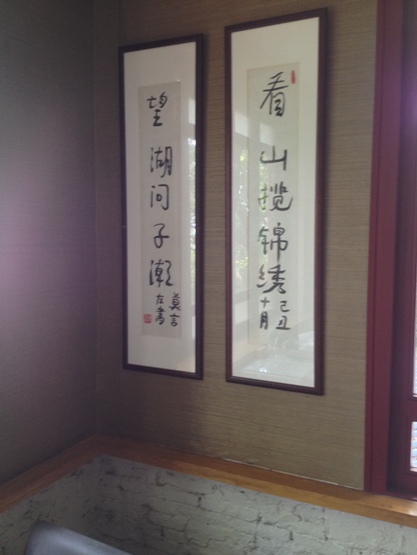 看山揽锦绣
己丑
十月
望湖问子潮
莫言
左书